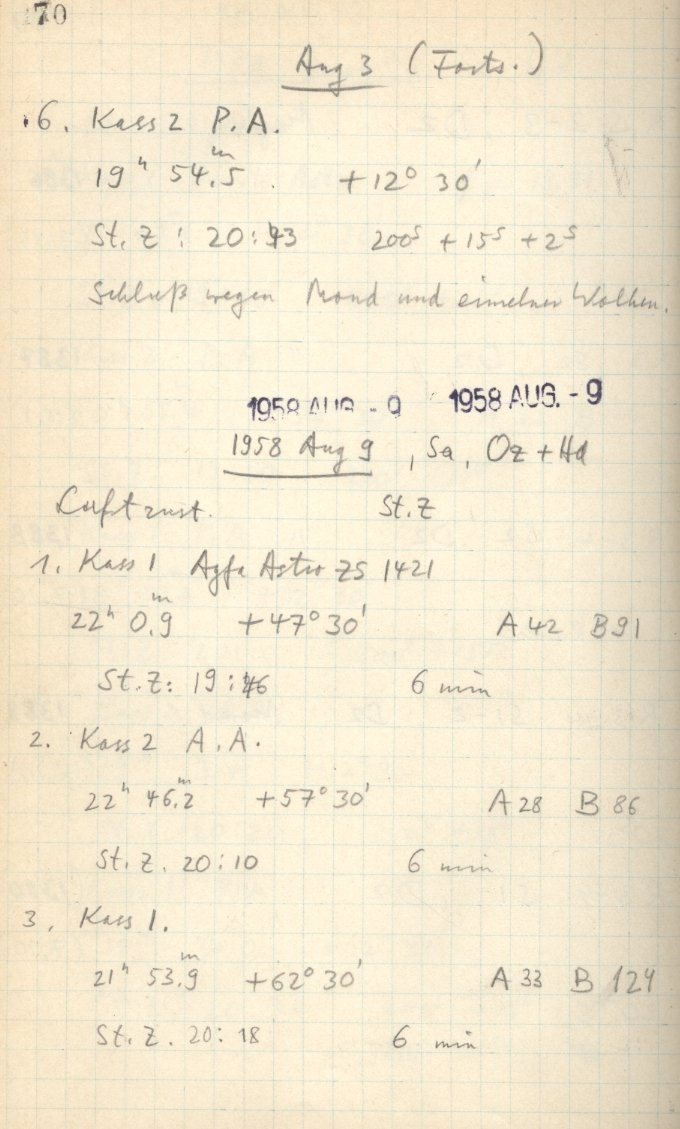 70
Aug 3 (Forts.)
6. Kass 2 P.A.
19h 54.5m +12° 30'
St. Z: 20:43 200s + 15s + 2s
Schluß wegen Mond und einzelner Wolken.
1958 AUG. - 9 1958 AUG. - 9
1958 Aug 9, Sa, Oz + Hd
Luftzust. St. Z
1. Kass 1 Agfa Astro ZS 1421
22h 0.9m +47° 30' A 42 B 91
St. Z: 19:46 6 min
2. Kass 2 A.A.
22h 46.2m +57° 30' A 28 B 86
St. Z. 20:10 6 min
3. Kass 1.
21h 53.9m +62° 30' A 33 B 124
St. Z. 20:18 6 min